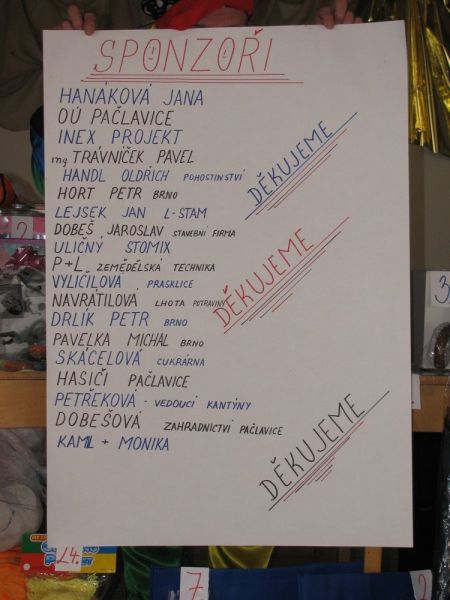 SPONZOŘI
HANÁKOVÁ JANA
OÚ PAČLAVICE
INEX PROJEKT
ing TRÁVNÍČEK PAVEL
HANDL OLDŘICH POHOSTINSTVÍ
HORT PETR BRNO
LEJSEK JAN L-STAM
DOBEŠ JAROSLAV STAVEBNÍ FIRMA
ULIČNÝ STOMIX
P+L ZEMĚDĚLSKÁ TECHNIKA
VYLÍČILOVÁ PRASKLICE
NAVRÁTILOVÁ LHOTA POTRAVINY
DRLÍK PETR BRNO
PAVELKA MICHAL BRNO
SKÁCELOVÁ CUKRÁRNA
HASIČI PAČLAVICE
PETŘEKOVÁ - VEDOUCÍ KANTÝNY
DOBEŠOVÁ ZAHRADNICTVÍ PAČLAVICE
KAMIL + MONIKA
DĚKUJEME
DĚKUJEME
DĚKUJEME
2
3
24.
7
2